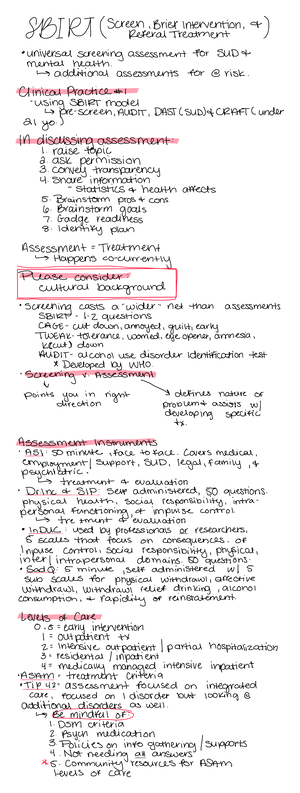 SBIRT (Screen, Brief Intervention, &
Referal Treatment)
• universal screening assessment for SUD &
mental health.
↳ additional assessments for @ risk.
Clinical Practice #1
- using SBIRT model
↳ pre-screen, AUDIT, DAST (SUD) & CRAFT (under
21 yo.)
In discussing assessment:
1. raise topic
2. ask permission
3. convey transparency
4. Share information
- Statistics & health affects
5. Brainstorm pros & cons
6. Brainstorm goals
7. Gadge readiness
8. Identify plan
Assessment = Treatment
↳ Happens co-currently
Please consider:
cultural background
• Screening casts a "wider" net than assessments
SBIRT - 1-2 questions
CAGE - cut down, annoyed, guilt, early
TWEAK - tolerance, worried, eye opener, amnesia,
k(cut) down
AUDIT - alcohol use disorder identification test
* Developed by WHO.
• Screening v. Assessment
↓ points you in right
direction
↳ defines nature of
problem & assists w/
developing specific
tx.
Assessment Instruments
• ASI: 50 minute, face to face. Covers medical,
employment/support, SUD, legal, family, &
psychiatric.
↳ treatment & evaluation
• Drinc & SIP: Self administered, 50 questions.
physical health, social responsibility, intra-
personal functioning & impulse control
↳ treatment & evaluation
• InDUC: used by professionals or researchers,
5 scales that focus on consequences of
impulse control, social responsibility, physical,
inter/intrapersonal domains. 50 questions.
• SadQ: 5 minute, self administered w/ 5
sub scales for physical withdrawl, affective
withdrawl, withdrawl relief drinking, alcohol
consumption, & rapidity of reinstatement
Levels of Care
0.5 = early intervention
1 = outpatient tx
2 = intensive outpatient / partial hospitalization
3 = residential / inpatient
4 = medically managed intensive inpatient
• ASAM = treatment criteria
• "TIP 42" assessment focused on integrated
care, focused on 1 disorder but looking @
additional disorders as well.
↳ Be mindful of:
1. DSM criteria
2. Psych medication
3. Policies on info gathering / supports
4. Not needing all answers
* 5. Community resources for ASAM
levels of care